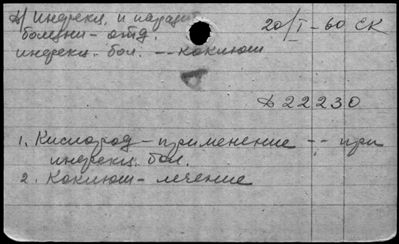 д/ Инфекц. и парази
20/I-60 СК
болезни - отд.
инфекц. бол. -- коклюш
Д 22230
1. Кислород - применение -- при
инфекц. бол.
2. Коклюш - лечение